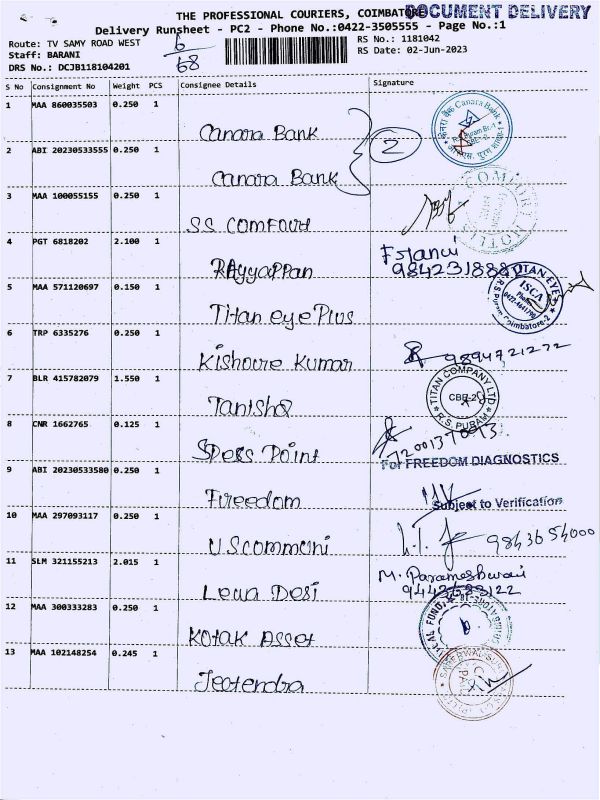 THE PROFESSIONAL COURIERS, COIMBATORE
DOCUMENT DELIVERY
Delivery Runsheet - PC2 - Phone No.:0422-3505555 - Page No.:1
Route: TV SAMY ROAD WEST
Staff: BARANI
DRS No.: DCJB118104201
6
68
RS No.: 1181042
RS Date: 02-Jun-2023
S No Consignment No Weight PCS Consignee Details Signature
1 MAA 860035503 0.250 1 Canara Bank
2 ABI 20230533555 0.250 1 Canara Bank
2
Canara Bank
3 MAA 100055155 0.250 1 SS COMFOURT
4 PGT 6818202 2.100 1 RAyyAppan
5 MAA 571120697 0.150 1 Titan eye Plus
TITAN EYE
ISCA
R S Puram Coimbatore-2
6 TRP 6335276 0.250 1 Kishoure Kumar
9894721272
7 BLR 415782079 1.550 1 Tanishq
TITAN COMPANY LTD
CBE-2
R.S. PURAM
8 CNR 1662765 0.125 1 Specs Point
7200137093
For FREEDOM DIAGNOSTICS
9 ABI 20230533580 0.250 1 Freedom
Subject to Verification
10 MAA 297093117 0.250 1 U.S communi
9843654000
11 SLM 321155213 2.015 1 Leua Desi
M. Parameshwari
12 MAA 300333283 0.250 1 Kotak Asset
13 MAA 102148254 0.245 1 Jeetendra